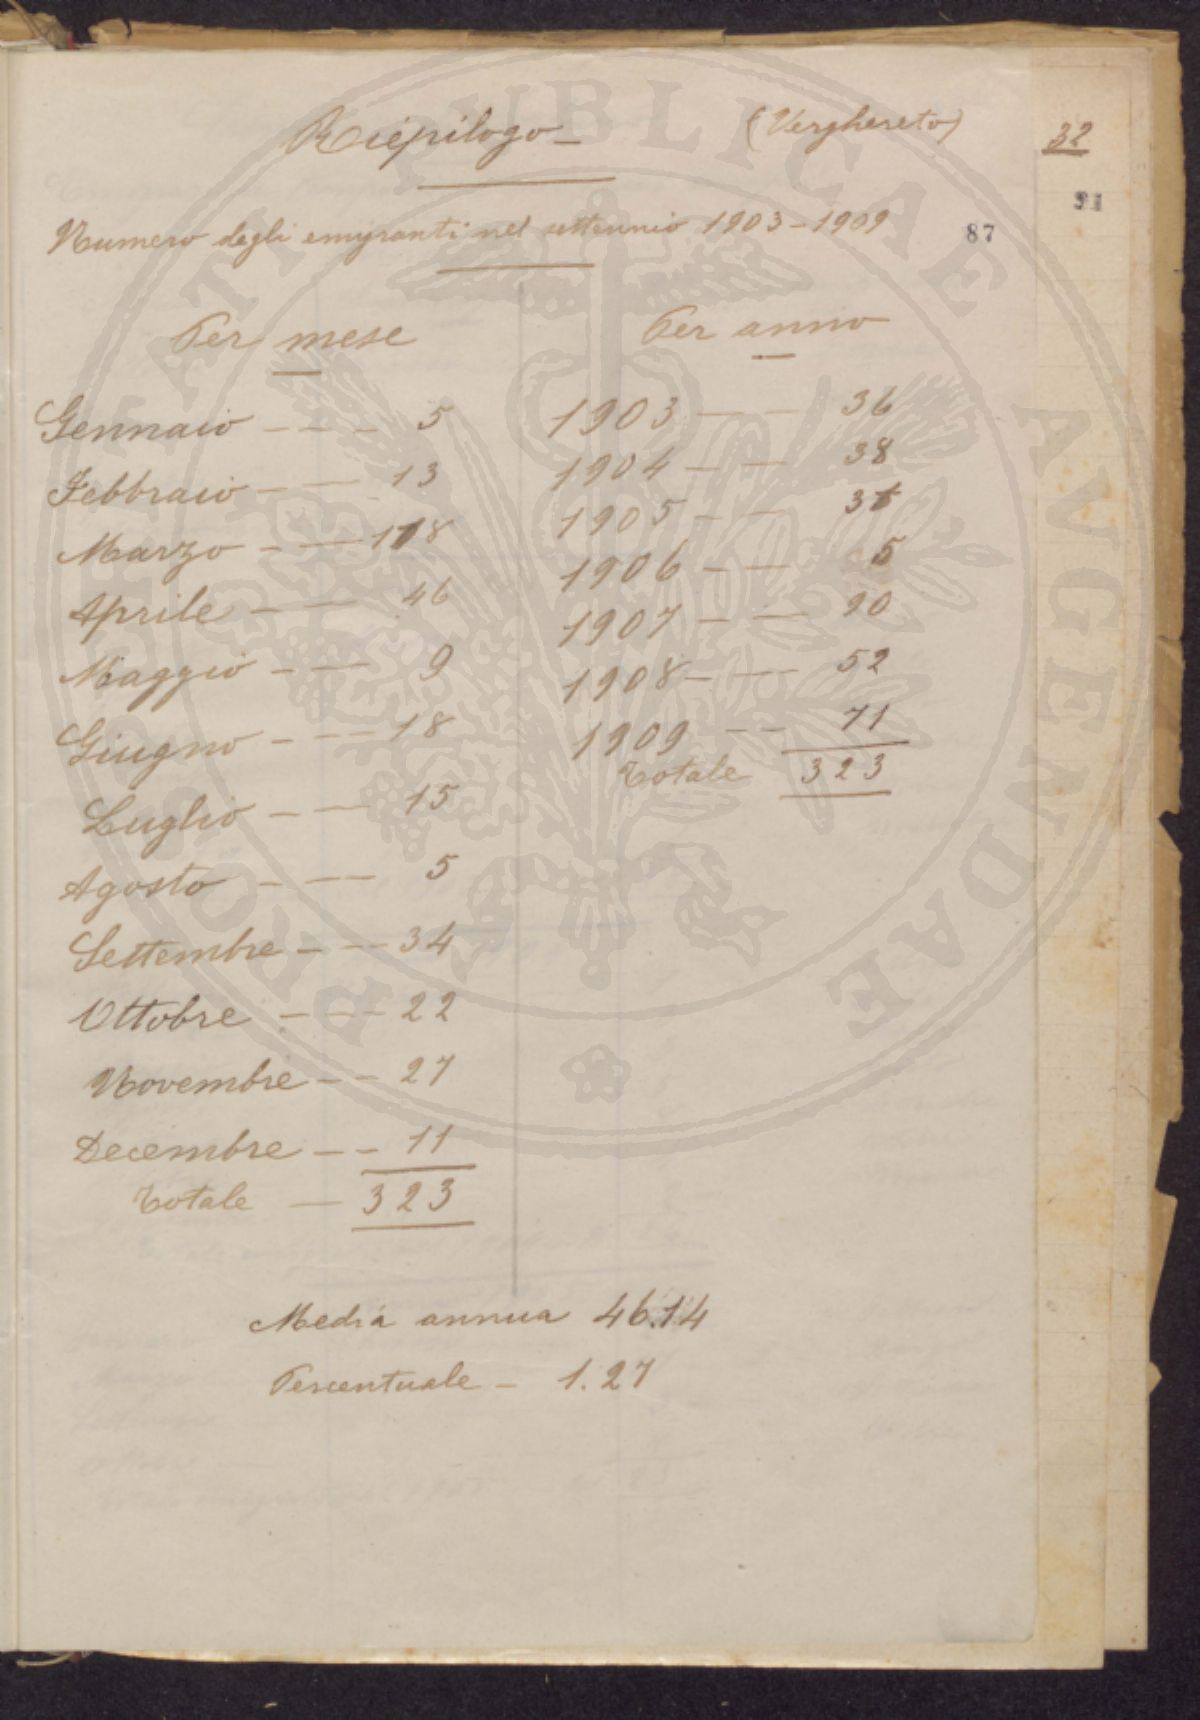 Riepilogo –
(Verghereto)
32
91
87
Numero degli emigranti nel settennio 1903–1909
Per mese
Gennaio – – – 5
Febbraio – — 13
Marzo – — 118
Aprile – — 46
Maggio – — 9
Giugno – — 18
Luglio – — 15
Agosto – — 5
Settembre – – 34
Ottobre – – 22
Novembre – – 27
Decembre – – 11
Totale — 323
Per anno
1903 — – 36
1904 – — 38
1905 – — 31
1906 – — 5
1907 – — 90
1908 – — 52
1909 – – 71
Totale 323
Media annua 46.14
Percentuale – 1.27
PROSPERITATI PVBLICAE AVGENDAE